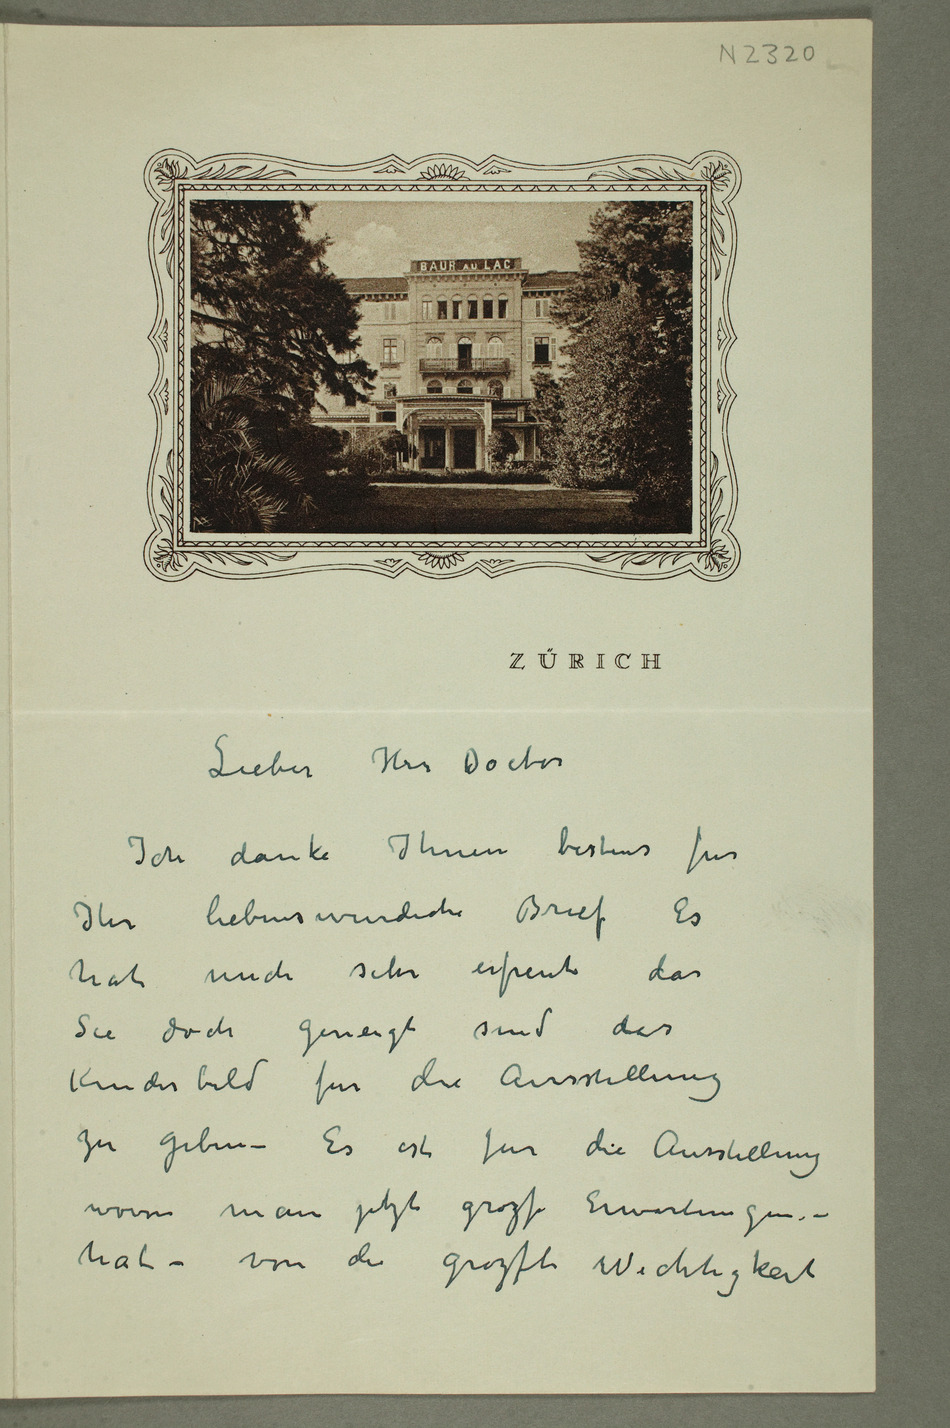 N2320
BAUR AU LAC
ZÜRICH
Lieber Herr Doctor
Ich danke Ihnen bestens fur
Ihr liebenswurdiche Brief Es
hat mich sehr erfreut das
Sie doch geneigt sind das
Kinderbild fur die Ausstellung
zu geben— Es ist fur die Ausstellung
wovon man jetzt grozse Erwartungen.–
hat – von die grozste Wichtigkeit